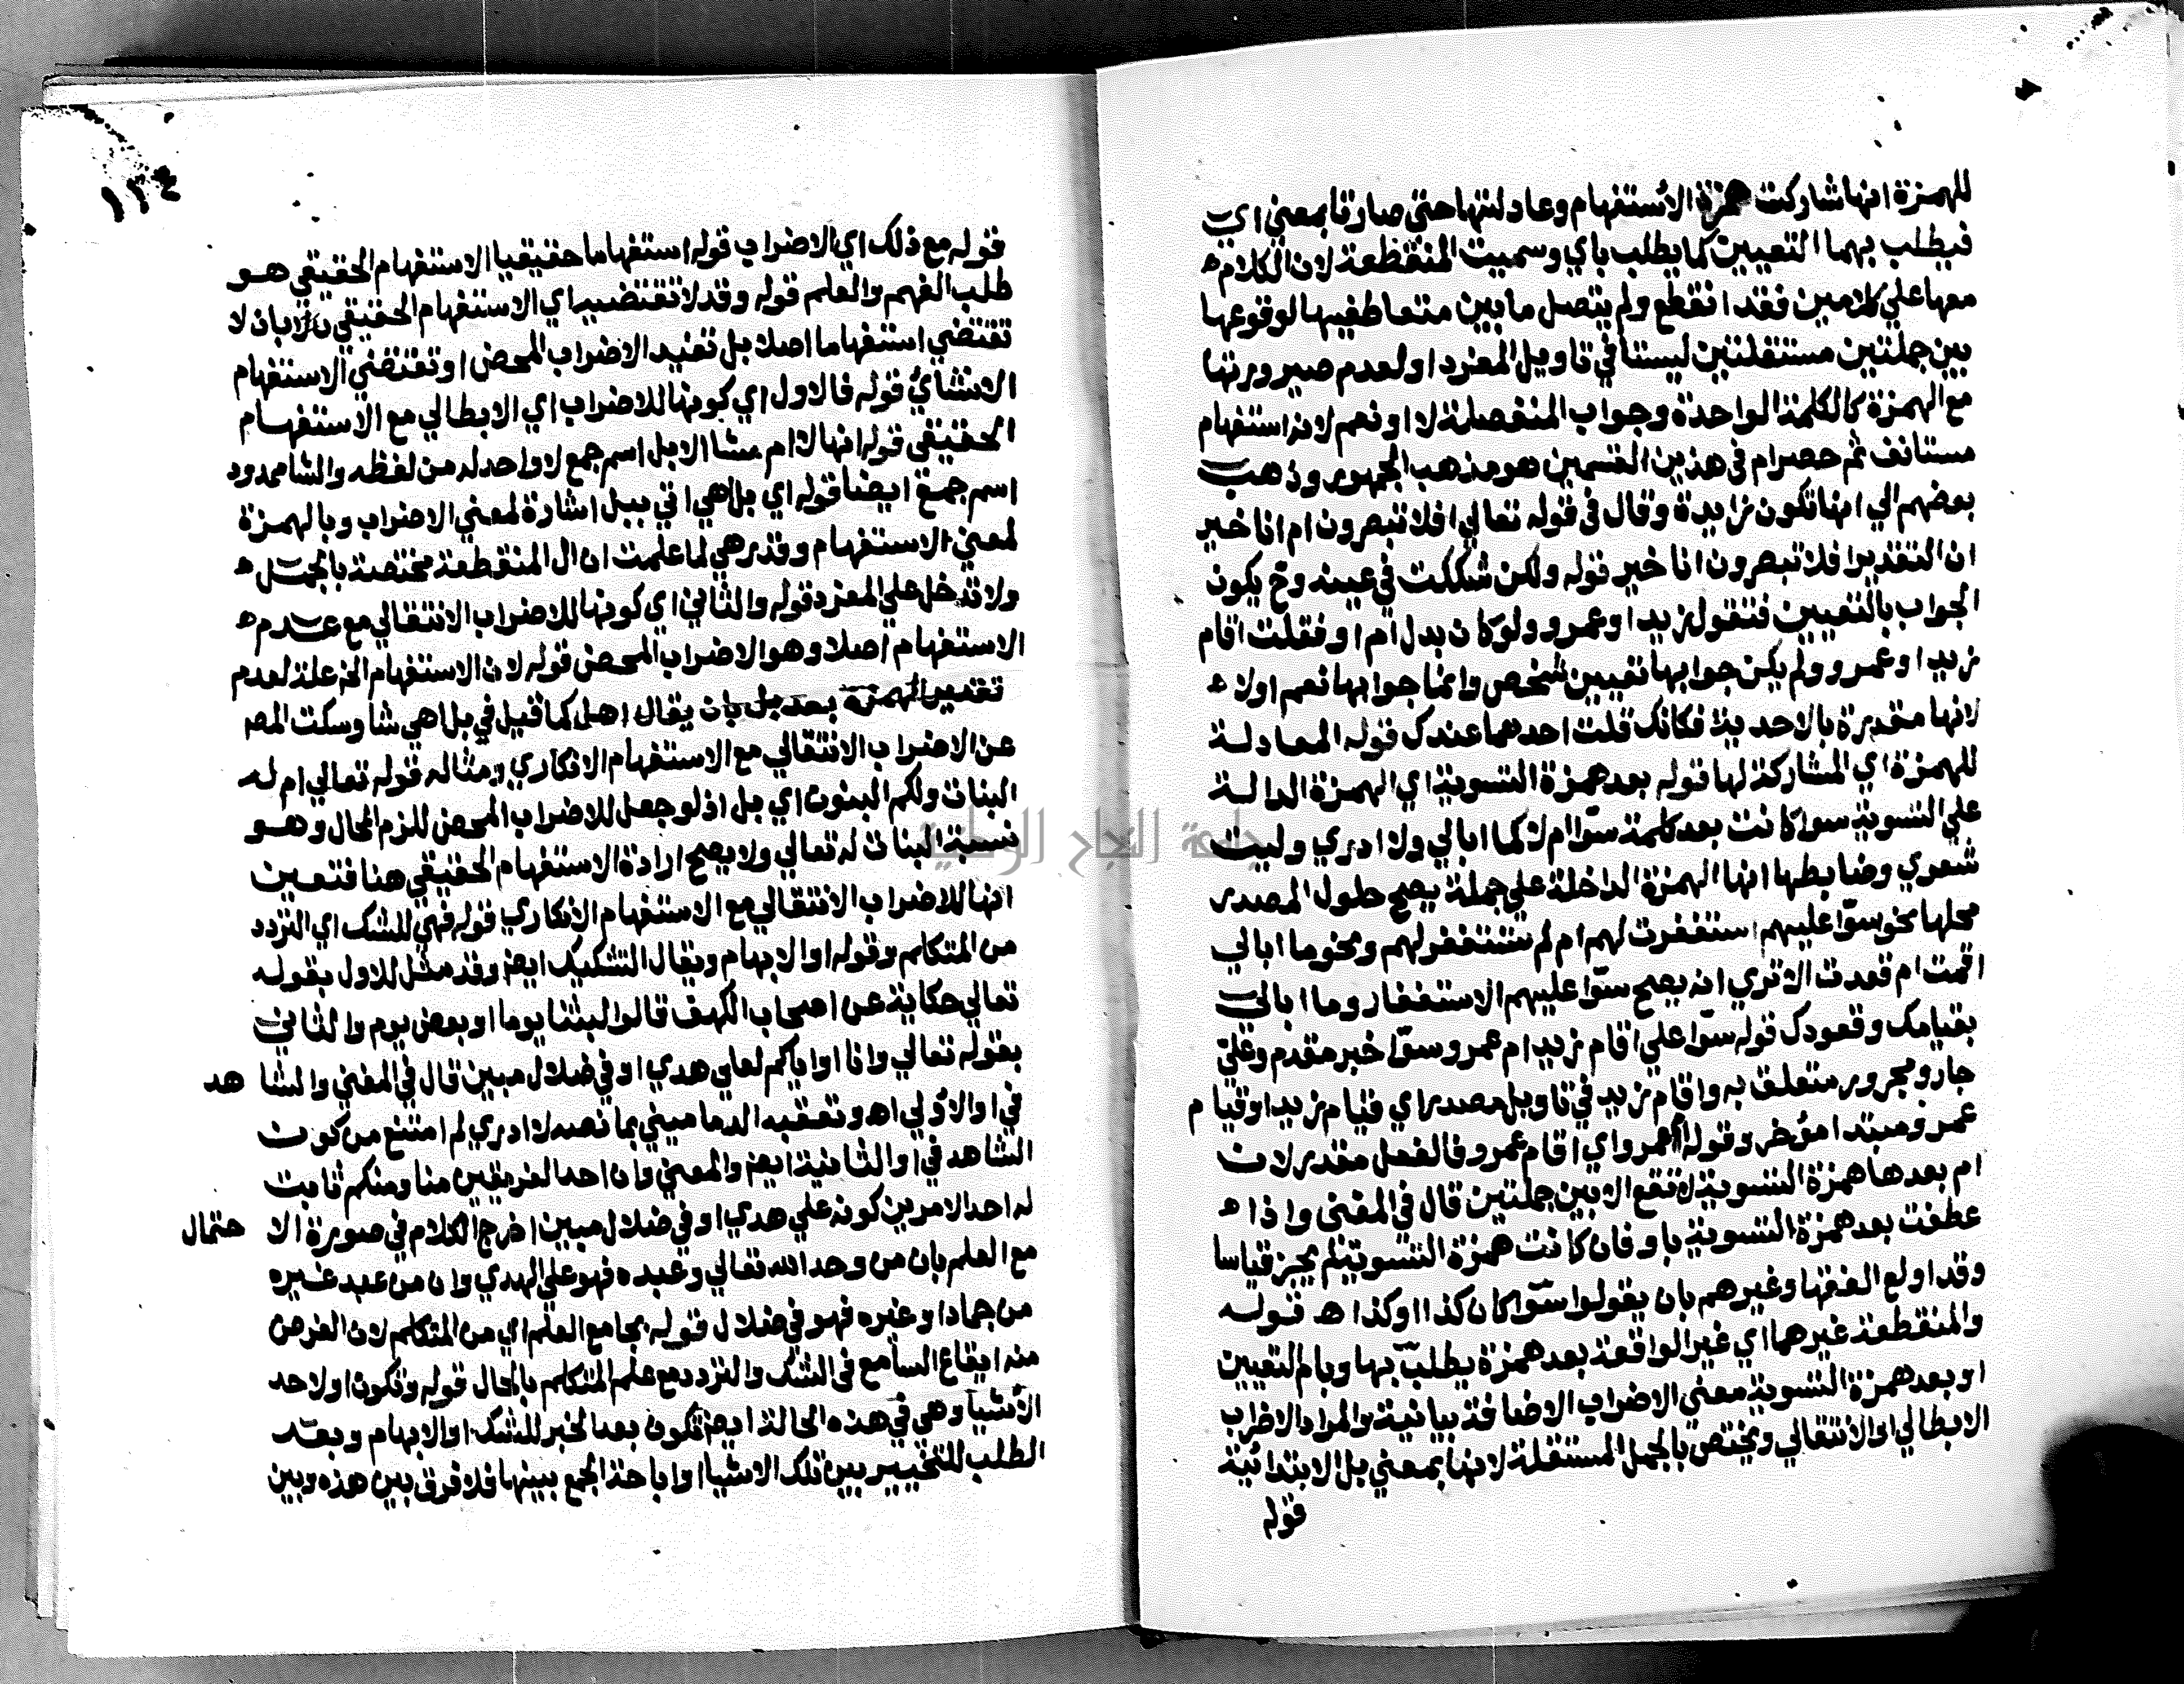 للهمزة انها شاركت همزة الاستفهام وعادلتها حتى صارتا بمعني اي
فيطلب بهما التعيين كما يطلب باي وسميت المنقطعة لان الكلام
معها علي كلامين فقد انقطع ولم يتصل ما بين متعاطفيها لوقوعها
بين جملتين مستقلتين ليستا في تاويل المفرد او لعدم صيرورتها
مع الهمزة كالكلمة الواحدة وجواب المنفصلة لا او نعم لانه استفهام
مستانف ثم حصر ام في هذين القسمين هو مذهب الجمهور وذهب
بعضهم الي انها تكون زايدة وقال في قوله تعالي افلا تبصرون ام انا خير
ان التقدير افلا تبصرون انا خير قوله ولكن شككت في عينه وح يكون
الجواب بالتعيين فتقول زيد او عمرو ولو كان بدل ام او فقلت اقام
زيد او عمرو ولم يكن جوابها تعيين شخص وانما جوابها نعم او لا
لانها مقدرة بالاحدية فكانك قلت احدهما عندك قوله المعادلة
للهمزة اي المشاركة لها قوله بعد همزة التسوية اي الهمزة الدالة
علي التسوية سوا كانت بعد كلمة سوآ ام لا كما ابالي ولا ادري وليت
شعري وضابطها انها الهمزة الداخلة علي جملة يصح حلول المصدر
محلها نحو سوآ عليهم استغفرت لهم ام لم تستغفر لهم ونحو ما ابالي
اقمت ام قعدت الا تري انه يصح سوآ عليهم الاستغفار وما ابالي
بقيامك وقعودك قوله سوآ علي اقام زيد ام عمرو سوآ خبر مقدم وعليّ
جار ومجرور متعلق به واقام زيد في تاويل مصدر اي قيام زيد او قيام
عمرو مبتدا مؤخر وقوله ام عمرو اي اقام عمرو فالفعل مقدر لان
ام بعدها همزة التسوية لا تقع الا بين جملتين قال في المغني واذا
عطفت بعد همزة التسوية باو فان كانت همزة التسوية لم يجز قياسا
وقد اولع الفقها وغيرهم بان يقولوا سوآ كان كذا او كذا اه قوله
والمنقطعة غيرها اي غير الواقعة بعد همزة يطلب بها وبام التعيين
او بعد همزة التسوية معني الاضراب الاضافة بيانية والمراد الاظراب
الابطالي او الانتقالي ويختص بالجمل المستقلة لانها بمعني بل الابتدائية
قوله
١٢٤
قوله مع ذلك اي الاضراب قوله استفهاما حقيقيا الاستفهام الحقيقي هو
طلب الفهم والعلم قوله وقد لا تقتضيه اي الاستفهام الحقيقي بان لا
تقتضي استفهاما اصلا بل تفيد الاضراب المحض او تقتضي الاستفهام
الانشائي قوله فالاول اي كونها للاضراب اي الابطالي مع الاستفهام
الحقيقي قوله انها لا ام شا الابل اسم جمع لا واحد له من لفظه والشا ممدود
اسم جمع ايضا قوله اي بل اهي اتي ببل اشارة لمعني الاضراب وبالهمزة
لمعني الاستفهام وقدر هي لما علمت ان ال المنقطعة مختصة بالجمل
ولا تدخل علي المفرد قوله والثاني اي كونها للاضراب الانتقالي مع عدم
الاستفهام اصلا وهو الاضراب المحض قوله لان الاستفهام الخ علة لعدم
تقدير الهمزة بعد بل بان يقال اهل كما قيل في بل اهي شا وسكت المص
عن الاضراب الانتقالي مع الاستفهام الانكاري ومثاله قوله تعالي ام له
البنات ولكم البنون اي بل اذ لو جعل للاضراب المحض للزم المحال وهو
نسبة البنات له تعالي ولا يصح ارادة الاستفهام الحقيقي هنا فتعين
انها للاضراب الانتقالي مع الاستفهام الانكاري قوله فهي للشك اي التردد
من المتكلم وقوله او الابهام ويقال التشكيك ايضا وقد مثل للاول بقوله
تعالي حكاية عن اصحاب الكهف قالوا لبثنا يوما او بعض يوم والثاني
بقوله تعالي وانا او اياكم لعلي هدي او في ضلال مبين قال في المغني والشا هد
في او الاولي اه وتعقبه الدماميني بما نصه لا ادري لم امتنع من كون
الشاهد في او الثانية ايض والمعني وان احد الفريقين منا ومنكم ثابت
له احد الامرين كونه علي هدي او في ضلال مبين اخرج الكلام في صورة الا حتمال
مع العلم بان من وحد الله تعالي وعبده فهو علي الهدي وان من عبد غيره
من جماد او غيره فهو في ضلال قوله بجامع العلم اي من المتكلم لان الغرض
منه ايقاع السامع في الشك والتردد مع علم المتكلم بالحال قوله وتكون او لاحد
الأشيآ وهي في هذه الحالة ايض تكون بعد الخبر للشك او الابهام وبعد
الطلب للتخيير بين تلك الاشيا او اباحة الجمع بينها فلا فرق بين هذه وبين
جامعة النجاح الوطنية